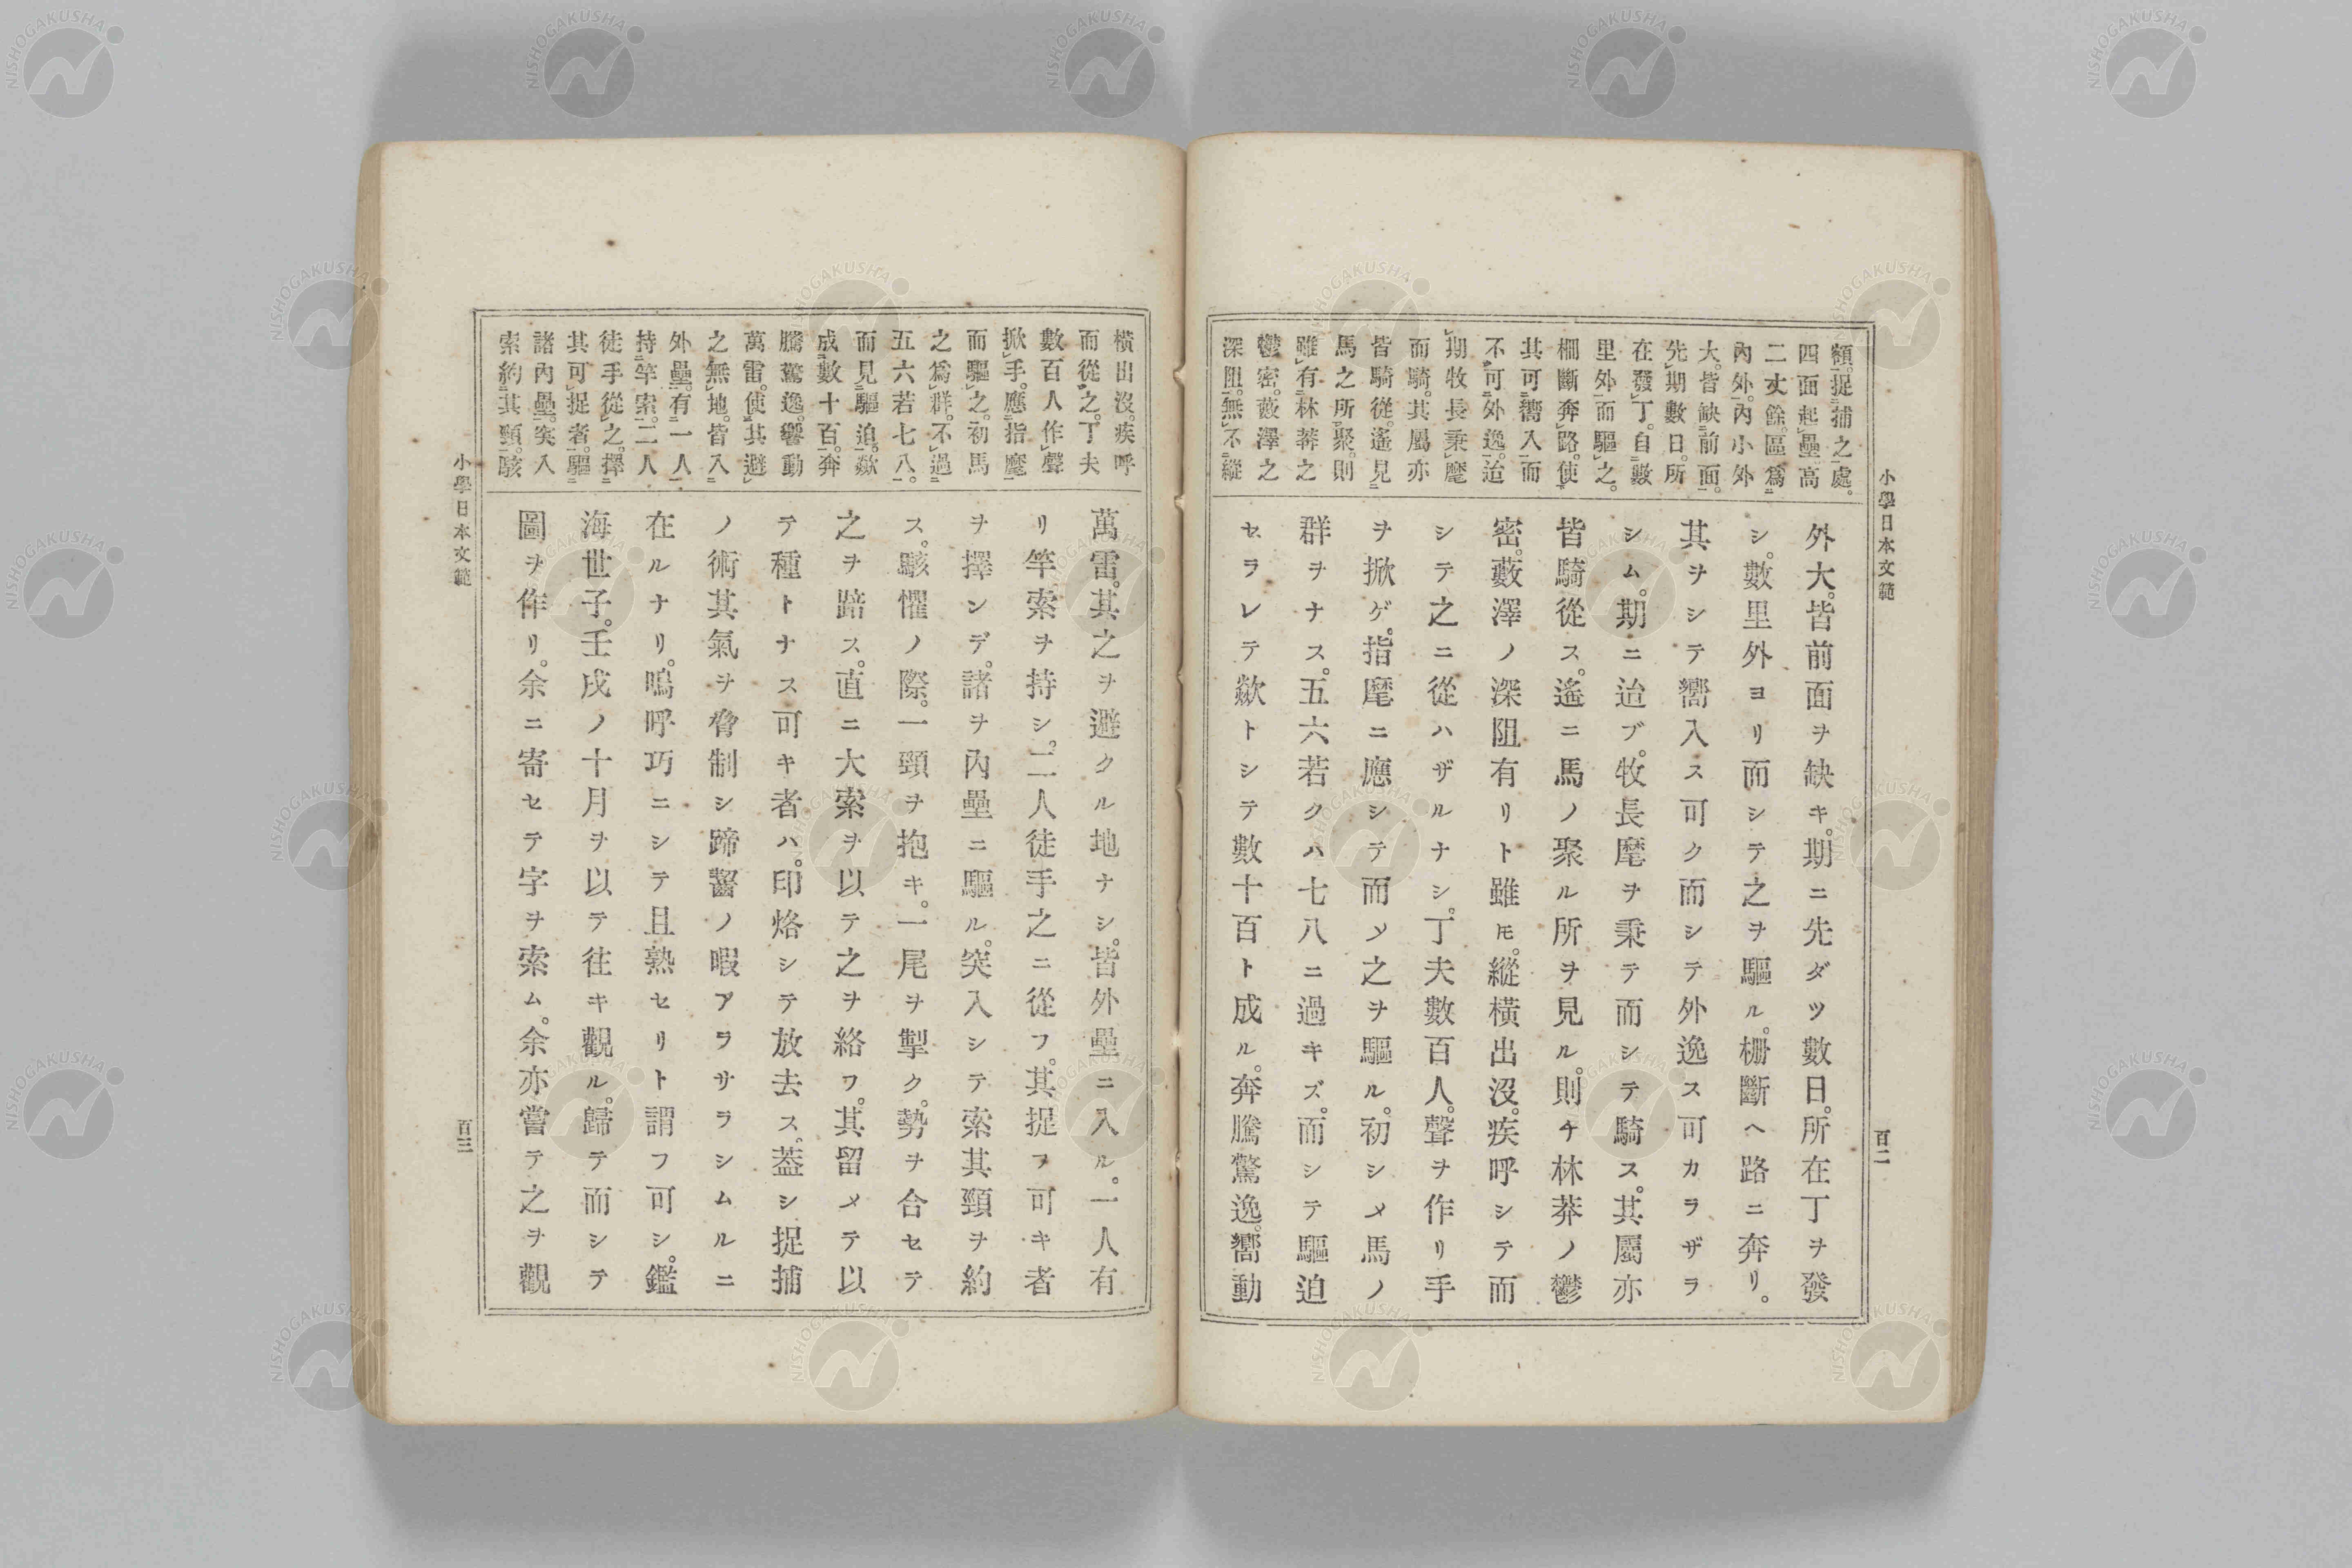 小學日本文範
百二
額。捉捕之處。
四面起壘高
二丈餘。區爲
內外。內小外
大。皆缺前面。
先期數日。所
在發丁。自數
里外而驅之。
柵斷奔路。使
其可嚮入而
不可外逸。迨
期牧長秉麾
而騎。其屬亦
皆騎從。遙見
馬之所聚。則
雖有林莽之
鬱密。藪澤之
深阻。無不縱
外大。皆前面ヲ缺キ。期ニ先ダツ數日。所在丁ヲ發
シ。數里外ヨリ而シテ之ヲ驅ル。柵斷ヘ路ニ奔リ。
其ヲシテ嚮入ス可ク而シテ外逸ス可カラザラ
シム。期ニ迨ブ。牧長麾ヲ秉テ而シテ騎ス。其屬亦
皆騎從ス。遙ニ馬ノ聚ル所ヲ見ル。則チ林莽ノ鬱
密。藪澤ノ深阻有リト雖𪜈。縱橫出沒。疾呼シテ而
シテ之ニ從ハザルナシ。丁夫數百人。聲ヲ作リ手
ヲ掀ゲ。指麾ニ應シテ而メ之ヲ驅ル。初シメ馬ノ
群ヲナス。五六若クハ七八ニ過キズ。而シテ驅迫
セラレテ歘トシテ數十百ト成ル。奔騰驚逸。嚮動
橫出沒。疾呼
而從之。丁夫
數百人作聲
掀手。應指麾
而驅之。初馬
之爲群。不過
五六若七八。
而見驅迫。歘
成數十百。奔
騰驚逸。響動
萬雷。使其避
之無地。皆入
外壘。有一人
持竿索。二人
徒手從之。擇
其可捉者。驅
諸內壘。突入
索約其頸。駭
萬雷。其之ヲ避クル地ナシ。皆外壘ニ入ル。一人有
リ竿索ヲ持シ。二人徒手之ニ從フ。其捉フ可キ者
ヲ擇ンデ。諸ヲ內壘ニ驅ル。突入シテ索其頸ヲ約
ス。駭懼ノ際。一頸ヲ抱キ。一尾ヲ掣ク。勢ヲ合セテ
之ヲ踣ス。直ニ大索ヲ以テ之ヲ絡フ。其留メテ以
テ種トナス可キ者ハ。印烙シテ放去ス。蓋シ捉捕
ノ術其氣ヲ脅制シ蹄齧ノ暇アラサラシムルニ
在ルナリ。嗚呼巧ニシテ且熟セリト謂フ可シ。鑑
海世子。壬戌ノ十月ヲ以テ往キ觀ル。歸テ而シテ
圖ヲ作リ。余ニ寄セテ字ヲ索ム。余亦嘗テ之ヲ觀
小學日本文範
百三